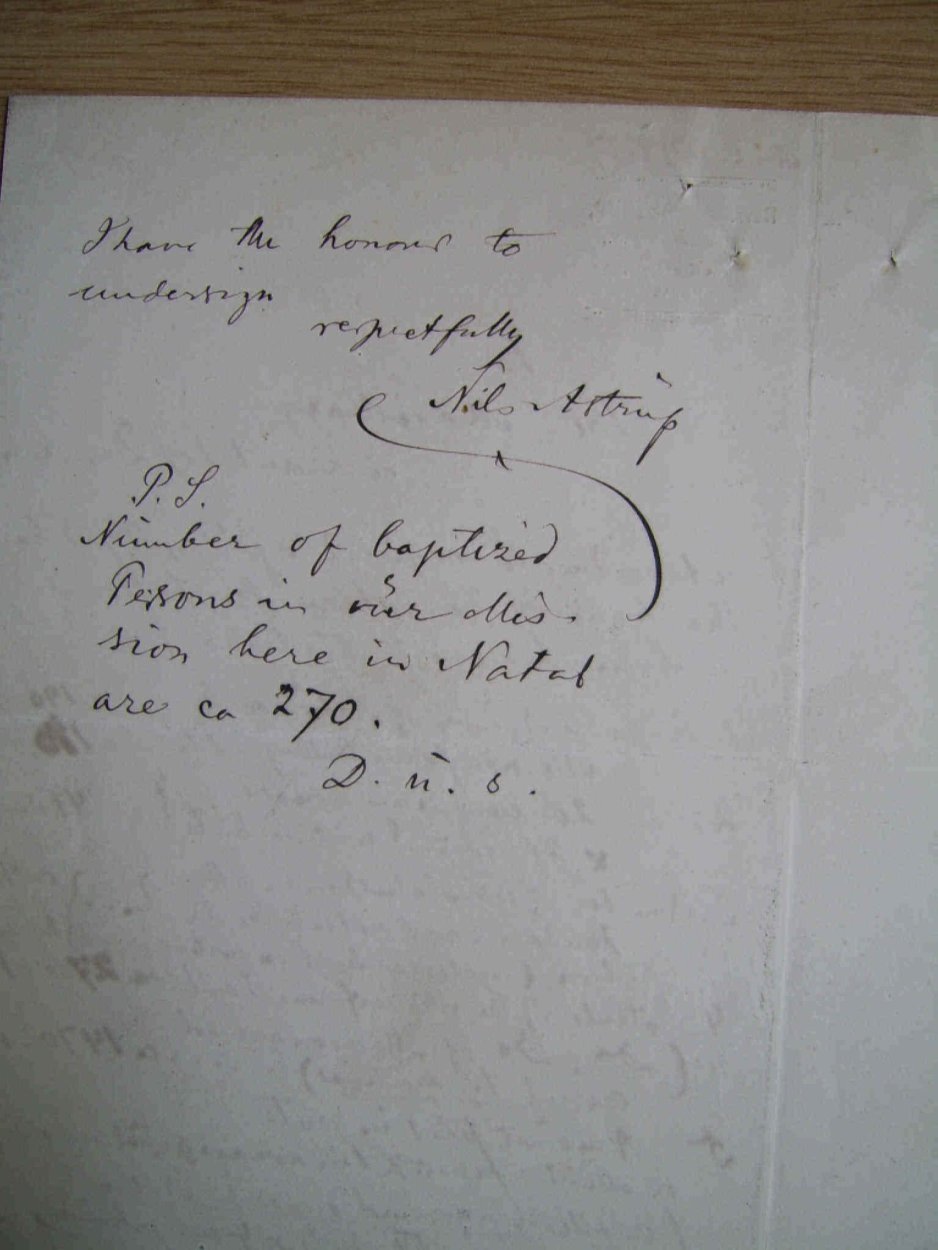 I have the honour to
undersign
respectfully
Nils Astrup
P.S.
Number of baptized
Persons in our Mis-
sion here in Natal
are ca 270.
D. u. s.